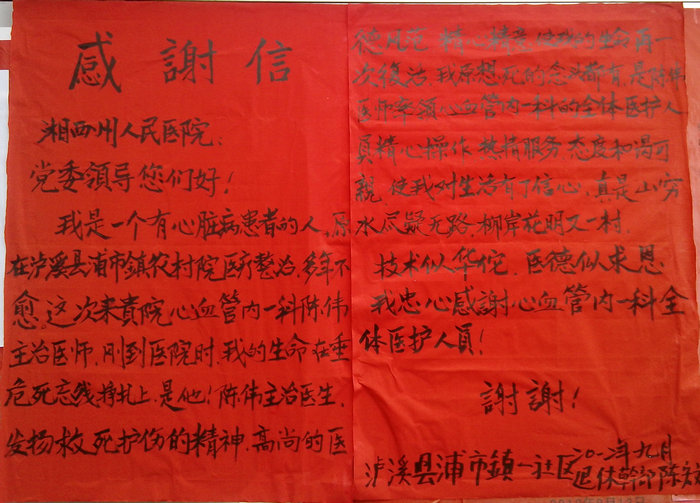 感謝信
湘西州人民医院:
党委領导您们好!
我是一个有心脏病患者的人,原
在泸溪县浦市鎮农村院医疗整治,多年不
愈,这次来貴院心血管内一科陈伟
主治医师,刚到医院时,我的生命在垂
危死亡线掙扎上,是他!陈伟主治医生,
发扬救死护伤的精神,高尚的医
德风范,精心精
的生命再一
次復活,我原想死的念头都有,是陈伟
医师率領心血管内一科的全体医护人
員精心操作,热情服务,态度和谒可
親,使我对生活有了信心,真是山穷
水尽疑无路,柳岸花明又一村.
技术似华佗,医德似求恩
我忠心感謝心血管内一科全
体医护人員!
謝謝!
泸溪县浦市鎮一社区
二0一二年九月
退休幹部陈